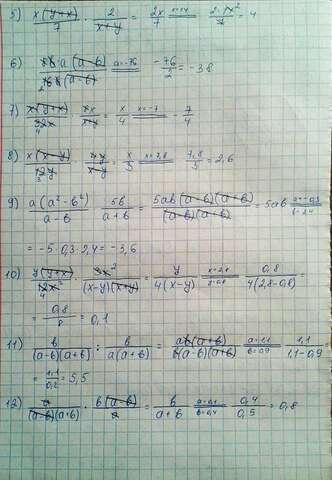 5) x(y+x)/7 · 2/(x+y) = 2x/7 x=14 2·14²/7 = 4
6) 76·a(a-b)/2·66(a-b) a=-76 -76/2 = -38
7) x(y+x)/32x · 8x/(x+y) = x/4 x=-7 - 7/4
8) x(x-y) = x/3 x=7,8 7,8/3 = 2,6
9) a(a²-b²)/(a-b) · 5b/(a+b) = 5ab(a-b)(a+b)/(a-b)(a+b) = 5ab a=-0,3 b=2,4
= -5·0,3·2,4 = -3,6
10) y(y+x)/12x² · 3x²/(x-y)(x+y) = y/4(x-y) x=2,8 y=0,8 0,8/4(2,8-0,8) =
= 0,8/8 = 0,1
11) b/(a-b)(a+b) : b/a(a+b) = ab(a+b)/b(a-b)(a+b) a=1,1 b=0,9 1,1/1,1-0,9 =
= 1,1/0,2 = 5,5
12) a/(a-b)(a+b) · b(a-b)/a = b/a+b a=0,1 b=0,4 0,4/0,5 = 0,8